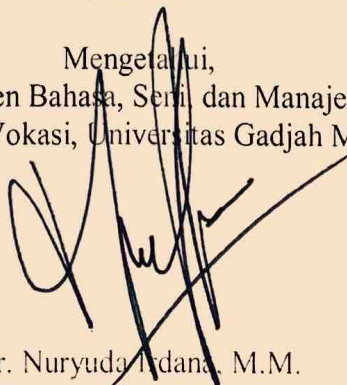 Mengetahui,
en Bahasa, Seni, dan Manaje
Vokasi, Universitas Gadjah M
r. Nuryuda Irdana, M.M.